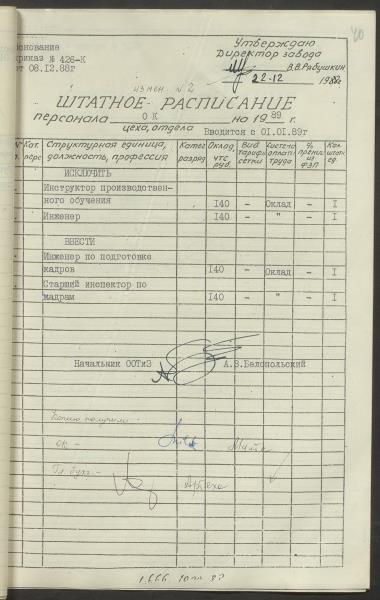 Утверждаю
Основание
Директор завода
приказ № 426-К
от 08.12.88г
В.В.Рябушкин
22.12 1988г.
измен. №2
ШТАТНОЕ РАСПИСАНИЕ
персонала ОК на 1989 г.
цеха, отдела Вводится с 01.01.89г
Кат. перс Структурная единица, должность, профессия Катег разряд Оклад, ЧТС руб. Вид тарифн сетки Система оплаты труда % премии из ФЗП Кол. штатн ед.
ИСКЛЮЧИТЬ
Инструктор производствен-
ного обучения I40 – Оклад – I
Инженер I40 – " – I
ВВЕСТИ
Инженер по подготовке
кадров I40 – Оклад – I
Старший инспектор по
кадрам I40 – " – I
Начальник ООТиЗ А.З.Белопольский
Копию получили:
ОК –
Гл. бух. –